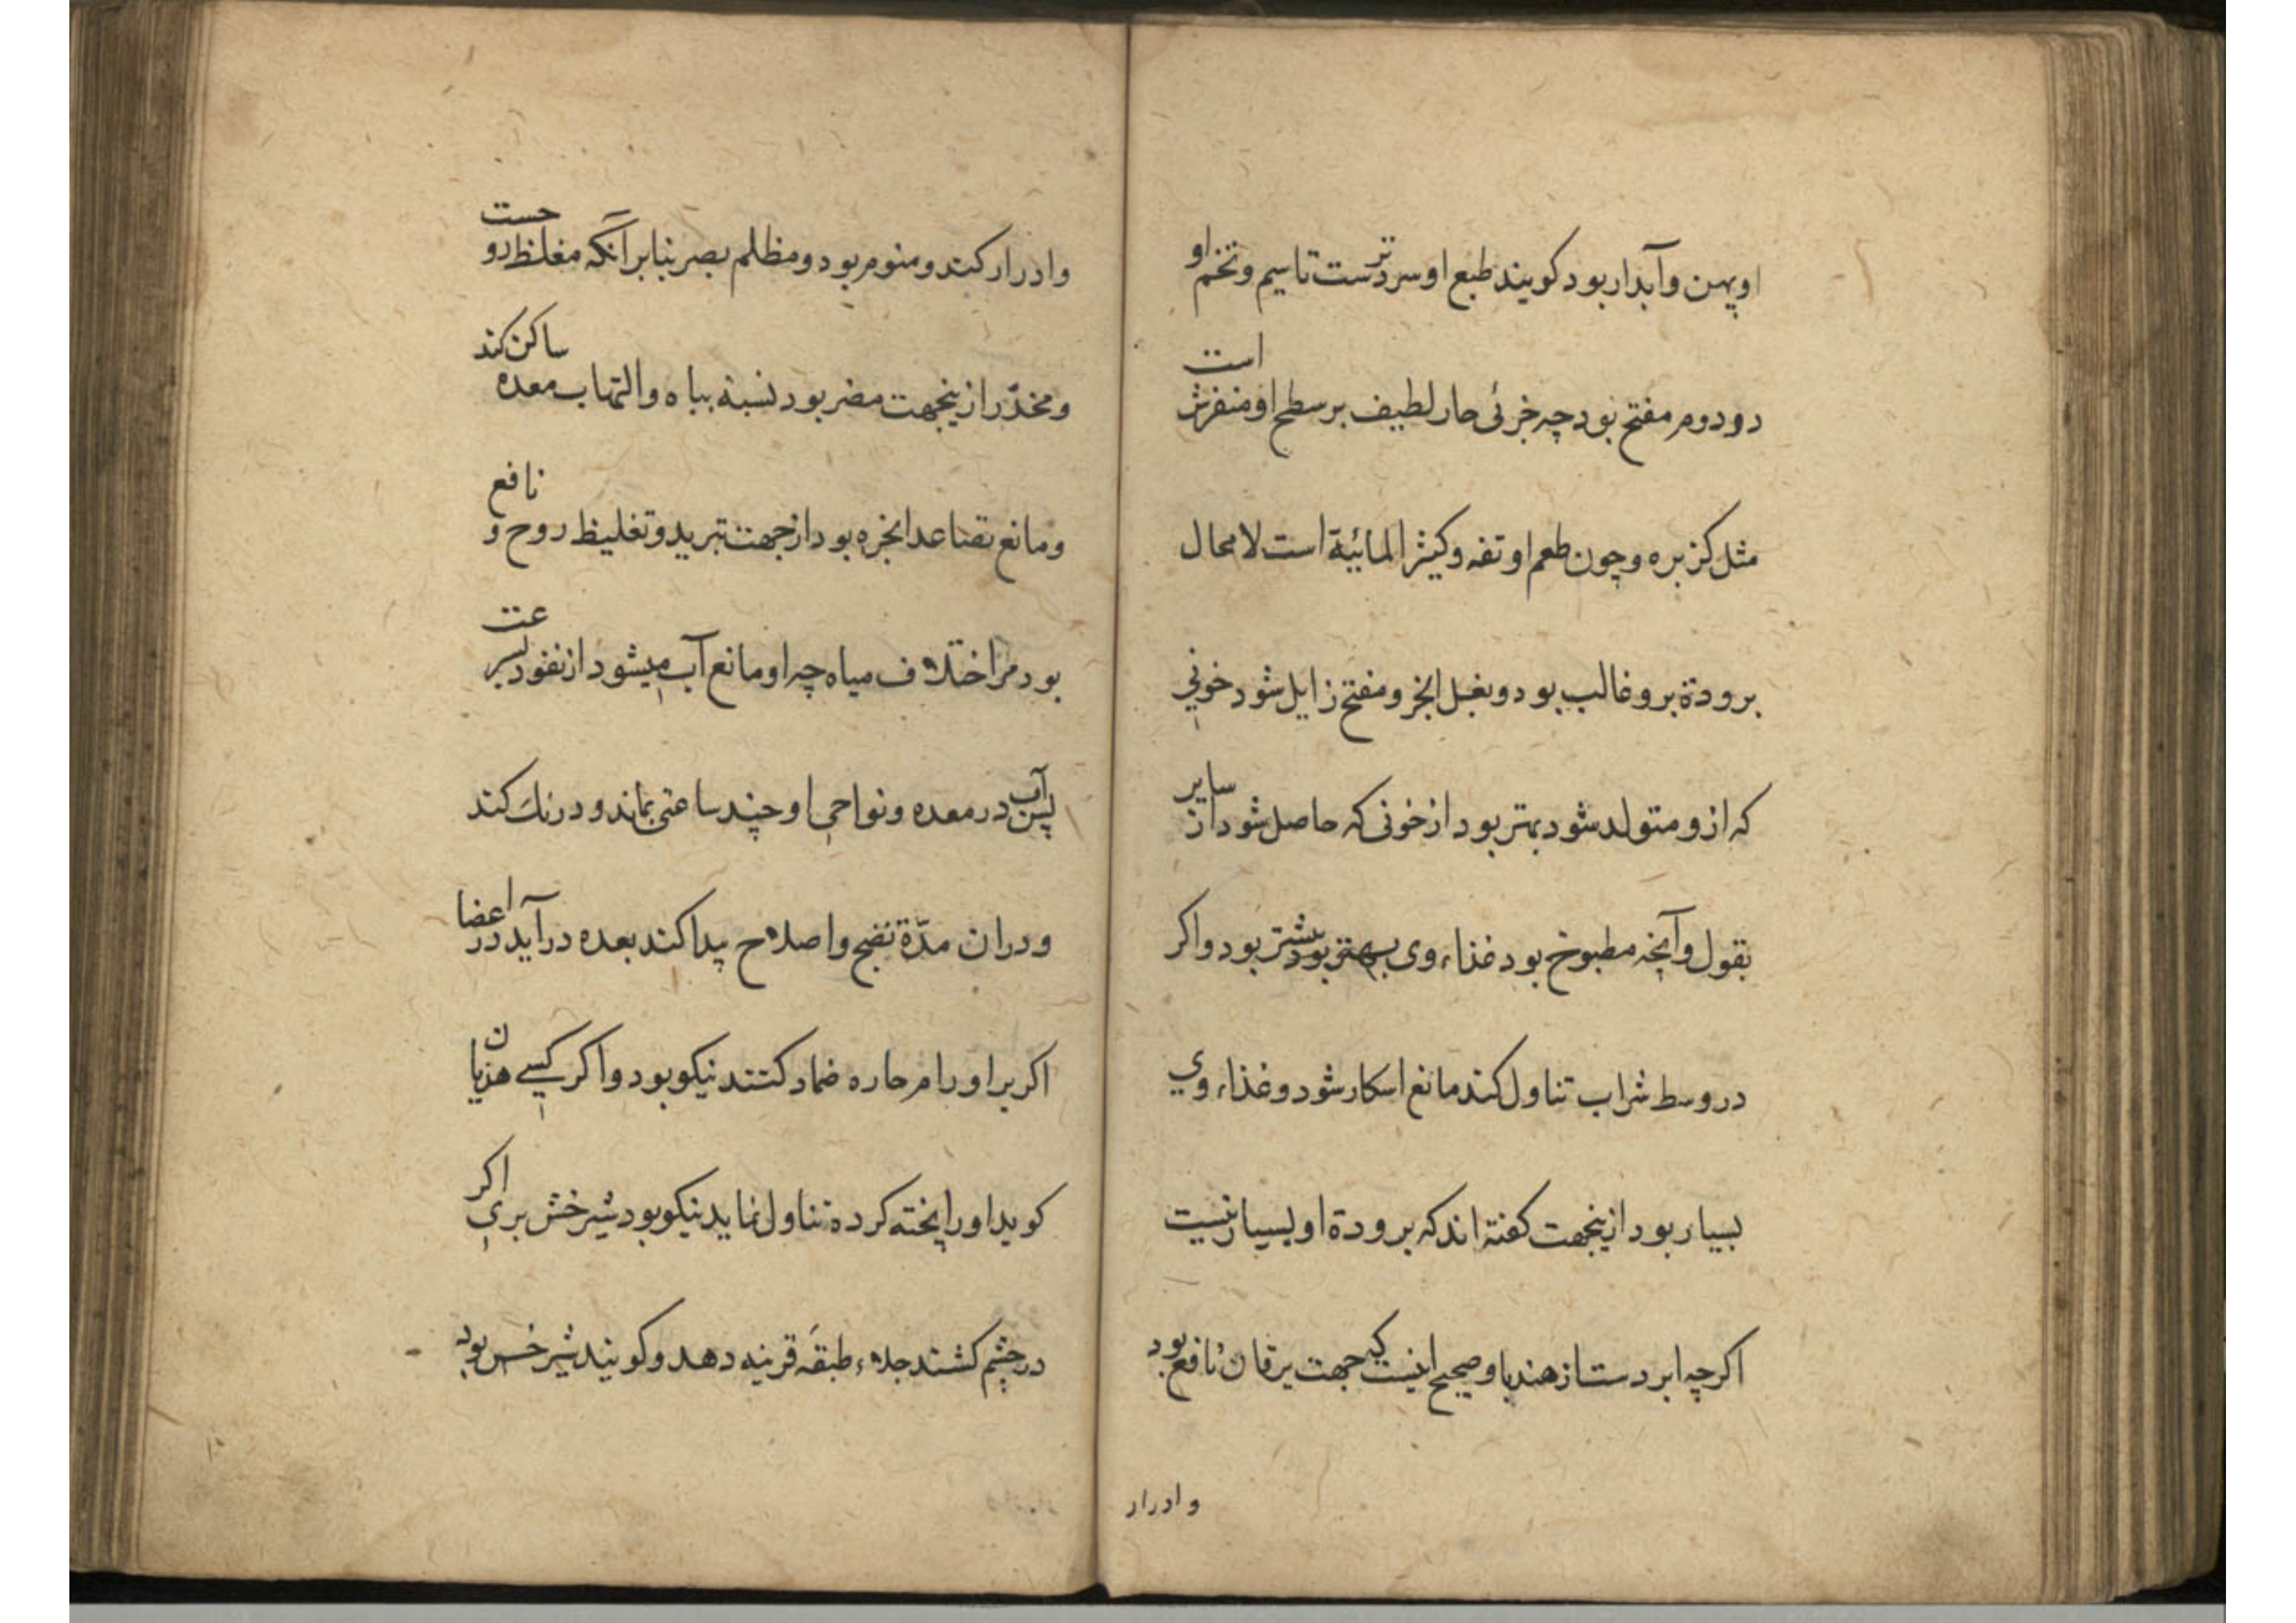 او پهن و آبدار بود کویند طبع او سردترست تا سیم و تخم او
دو دوم مفتح بود چه جزئی حار لطیف بر سطح او منفرش است
مثل کزبره و چون طعم او تفه و کثیر المائیة است لا محال
برودة برو غالب بود و بغسل ابخر و مفتح زایل شود خونی
که ازو متولد شود بهتر بود از خونی که حاصل شود از سایر
بقول و آنچه مطبوخ بود غذاء وی بهتر بود بیشتر بود واکر
در وسط شراب تناول کند مانع اسکار شود و غذاء وی
بسیار بود ازینجهت کفته اند که برودة او بسیار نیست
اکرچه ابردست از هندبا و صحیح اینست که جهت یرقان نافع بود
و ادرار
و ادرار کند و منوم بود و مظلم بصر بنابر آنکه مغلظ روحست
و مخدّر ازینجهت مضر بود نسبة بباه و التهاب معده ساکن کند
و مانع تصاعد ابخره بود از جهت تبرید و تغلیظ روح و نافع
بود مر اختلاف میاه چه او مانع آب میشود از نفود بسرعت
پس آب در معده و نواحی او چند ساعتی بماند و درنك کند
و در ان مدّة نضج و اصلاح پیدا کند بعده در آید در اعضا
اکر بر اورام حاره ضماد کنند نیکو بود و اکر کسی هزیان
کوید او را پخته کرده تناول نماید نیکو بود شیر خش بری اکر
در چشم کشند جلاء طبقه قرنیه دهد و کویند شیر خس بود